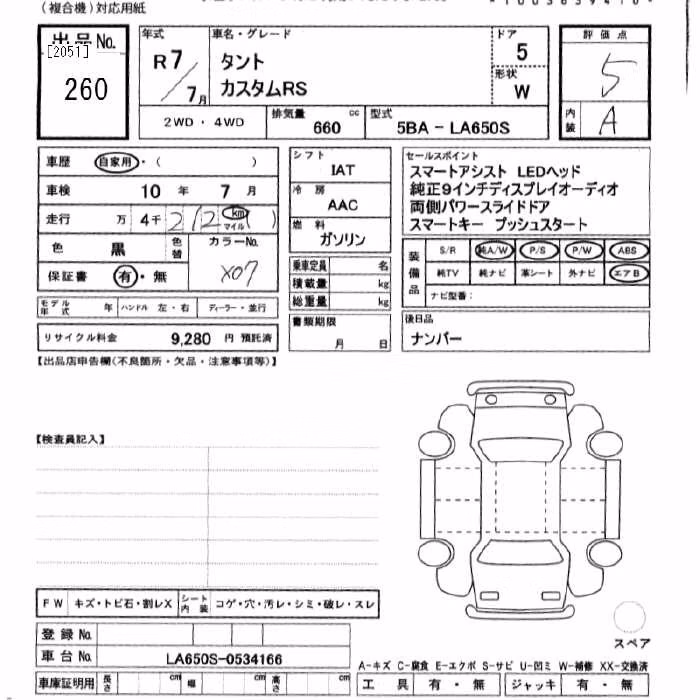 （複合機）対応用紙
出品No. [2051] 260
年式 R7/7月
車名・グレード タント カスタムRS
ドア 5 形状 W
評価点 5
内装 A
2WD・4WD 排気量 660 cc 型式 5BA - LA650S
車歴 自家用・（ ）
車検 10 年 7 月
走行 万 4千 212 km マイル ( )
色 黒 色替 カラーNo. X07
保証書 有・無
モデル年式 年 ハンドル 左・右 ディーラー・並行
リサイクル料金 9,280 円 預託済
シフト IAT
冷房 AAC
燃料 ガソリン
乗車定員 名
積載量 kg
総重量 kg
書類期限 月 日
セールスポイント
スマートアシスト LEDヘッド
純正9インチディスプレイオーディオ
両側パワースライドドア
スマートキー プッシュスタート
装備品 S/R 純A/W P/S P/W ABS
純TV 純ナビ 革シート 外ナビ エアB
ナビ型番:
後日品
ナンバー
【出品店申告欄(不良箇所・欠品・注意事項等)】
【検査員記入】
FW キズ・トビ石・割レX シート内装 コゲ・穴・汚レ・シミ・破レ・スレ
登録No.
車台No. LA650S-0534166
車庫証明用 長さ cm 幅 cm 高さ cm
スペア
A-キズ C-腐食 E-エクボ S-サビ U-凹ミ W-補修 XX-交換済
工具 有・無 ジャッキ 有・無